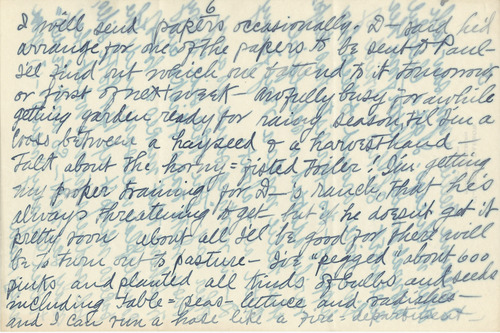 6
I will send papers occasionally. D— said he'd
arrange for one of the papers to be sent to Paul—
I'll find out which one & attend to it tomorrow
or first of next week— Awfully busy for awhile
getting garden ready for rainy season, til I'm a
cross between a hayseed & a harvesthand—
Talk about the horny=fisted toiler! I'm getting
my proper training for D—'s ranch, that he's
always threatening to get but if he doesn't get it
pretty soon about all I'll be good for there will
be to turn out to pasture— I've "pegged" about 600
pinks and planted all kinds of bulbs and seeds
including table=peas— lettuce and radishes—
and I can run a hose like a fire=department—